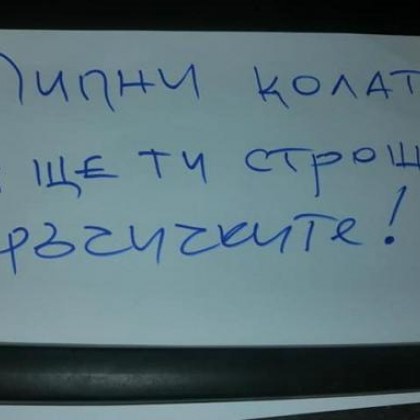 Пипни колат
ще ти строш
ръчичките!